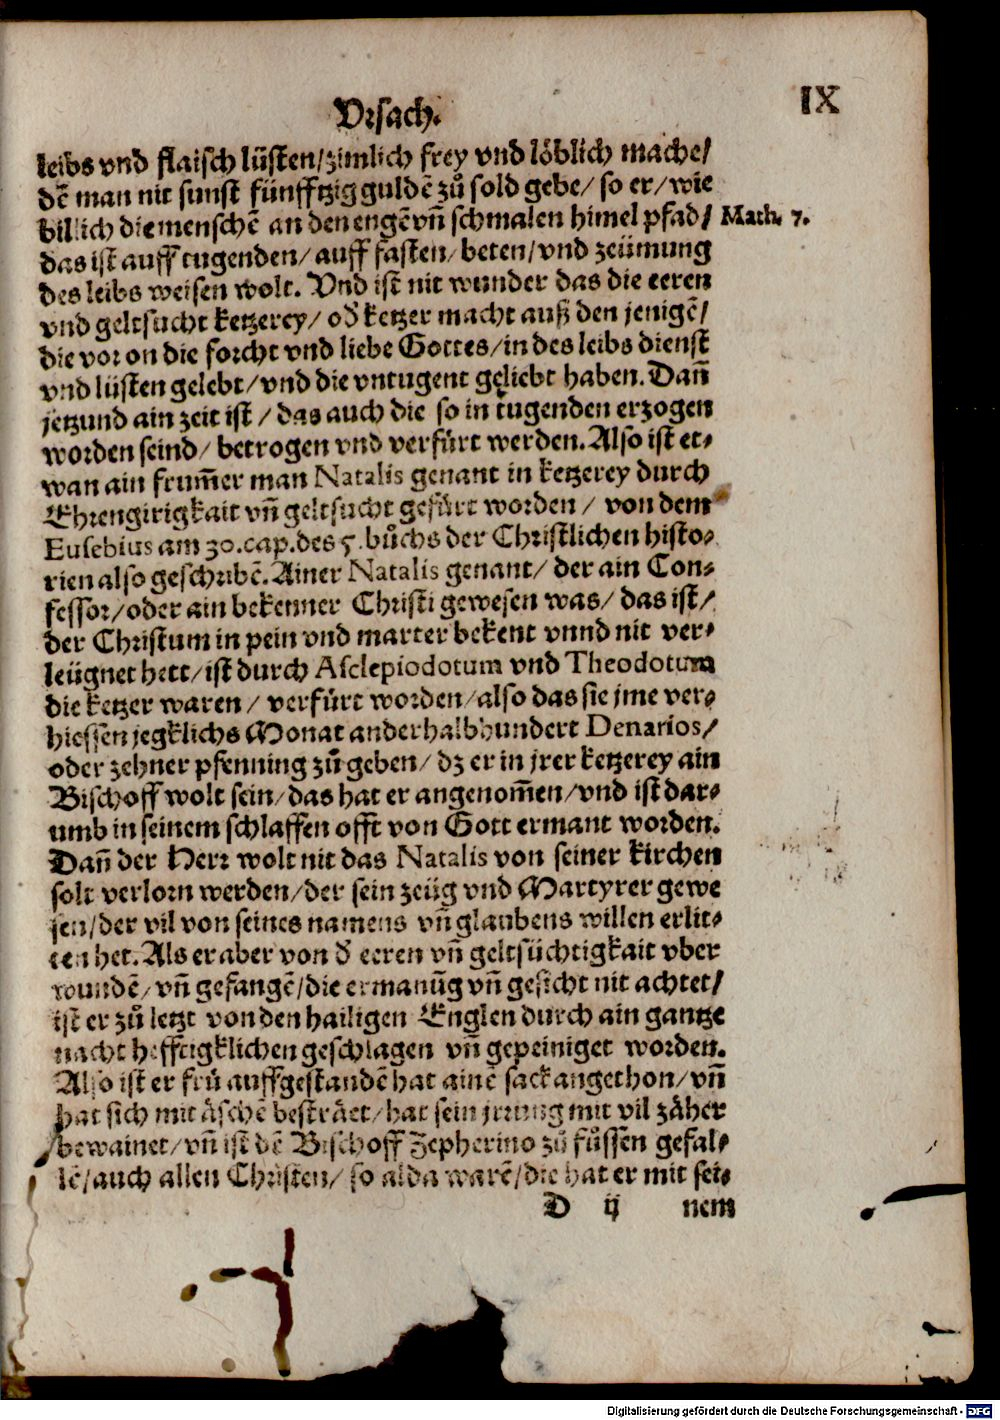 Vrsach.
IX
leibs vnd flaisch lüsten/zimlich frey vnd löblich mache/
dē man nit sunst fünfftzig guldē zů sold gebe/ so er/ wie
billich die menschē an den engē vn̄ schmalen himel pfad/ Math. 7.
das ist auff tugenden/ auff fasten/ beten/ vnd zeümung
des leibs weisen wolt. Vnd ist nit wunder das die eeren
vnd geltsucht ketzerey/ od̄ ketzer macht auß den jenigē/
die vor on die forcht vnd liebe Gottes/ in des leibs dienst
vnd lüsten gelebt/ vnd die vntugent geliebt haben. Dan̄
jetzund ain zeit ist / das auch die so in tugenden erzogen
worden seind/ betrogen vnd verfürt werden. Also ist et⸗
wan ain frum̄er man Natalis genant in ketzerey durch
Ehrengirigkait vn̄ geltsucht gefürt worden / von dem
Eusebius am 30. cap. des 5. bůchs der Christlichen histo⸗
rien also geschribē. Ainer Natalis genant/ der ain Con⸗
fessor/ oder ain bekenner Christi gewesen was/ das ist/
der Christum in pein vnd marter bekent vnnd nit ver⸗
leügnet hett/ ist durch Asclepiodotum vnd Theodotum
die ketzer waren / verfürt worden/ also das sie jme ver⸗
hiessen jegklichs Monat anderhalbhundert Denarios/
oder zehner pfenning zů geben/ dz er in jrer ketzerey ain
Bischoff wolt sein/ das hat er angenom̄en/ vnd ist dar⸗
umb in seinem schlaffen offt von Gott ermant worden.
Dan̄ der Herr wolt nit das Natalis von seiner kirchen
solt verlorn werden/ der sein zeüg vnd Martyrer gewe
sen/ der vil von seines namens vn̄ glaubens willen erlit⸗
ten het. Als er aber von d̄ eeren vn̄ geltsüchtigkait vber
wundē/ vn̄ gefangē/ die ermanūg vn̄ gesicht nit achtet/
ist er zů letzt von den hailigen Englen durch ain gantze
nacht hefftigklichen geschlagen vn̄ gepeiniget worden.
Also ist er frü auffgestandē hat ainē sack angethon/ vn̄
hat sich mit äschē besträet/ hat sein jrrung mit vil zäher
bewainet/ vn̄ ist dē Bischoff Zepherino zů füssen gefal⸗
lē/ auch allen Christen/ so alda warē/ die hat er mit sei⸗
D ij nem
Digitalisierung gefördert durch die Deutsche Forschungsgemeinschaft - DFG